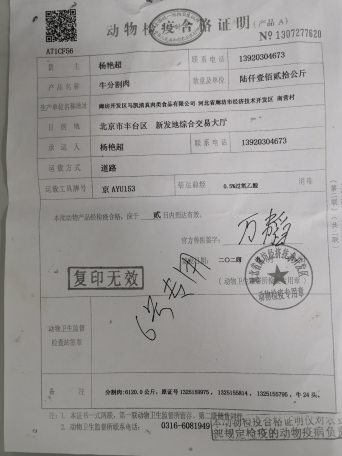 动物检疫合格证明(产品A)
A71CF56
№ 1307277620
货主 杨艳超 联系电话 13920304673
产品名称 牛分割肉 数量及单位 陆仟壹佰贰拾公斤
生产单位名称地址 廊坊开发区马凯清真肉类食品有限公司 河北省廊坊市经济技术开发区 南营村
目的地 北京市丰台区 新发地综合交易大厅
承运人 杨艳超 联系电话 13920304673
运载方式 道路
运载工具牌号 京 AYU153 装运前经 0.5%过氧乙酸 消毒
本批动物产品经检疫合格,应于 贰 日内到达有效。
官方兽医签字:
二〇二四
复印无效
6号专用
动物检疫专用章
动物卫生监督
检查站签章
备注 分割肉:6120.0公斤;原证号1325159975,1325155814,1325155795,牛24头。
注:1. 本证书一式两联,第一联动物卫生监督所留存,第二联随货同行。
2. 动物卫生监督所联系电话: 0316-6081949
本动物检疫合格证明仅对农业
部规定检疫的动物疫病负责